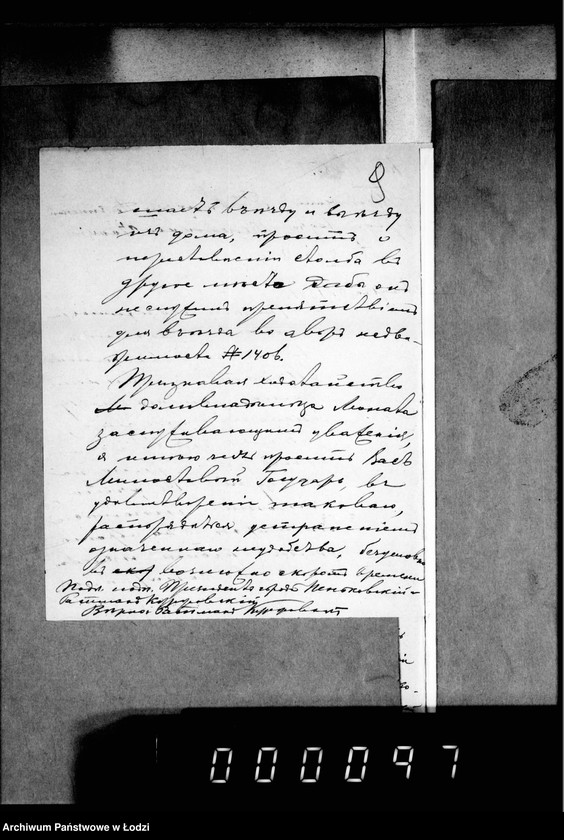 9
въѣзду и выѣзду
дома, проситъ о
столба въ
другое мѣсто дабы онъ
не служилъ препятствіемъ
для въѣзда во дворъ недви-
жимости #1406.
Признавая ходатайство
домовладѣльца
заслуживающимъ уваженія,
я имѣю честь просить Васъ
Милостивый Государь, въ
удовлетвореніи таковаго,
распорядиться устраненіемъ
означеннаго неудобства,
въ возможно скоромъ времени
Подл. подп. Президентъ города Пеньковскій
Вѣрно
000097
Archiwum Państwowe w Łodzi